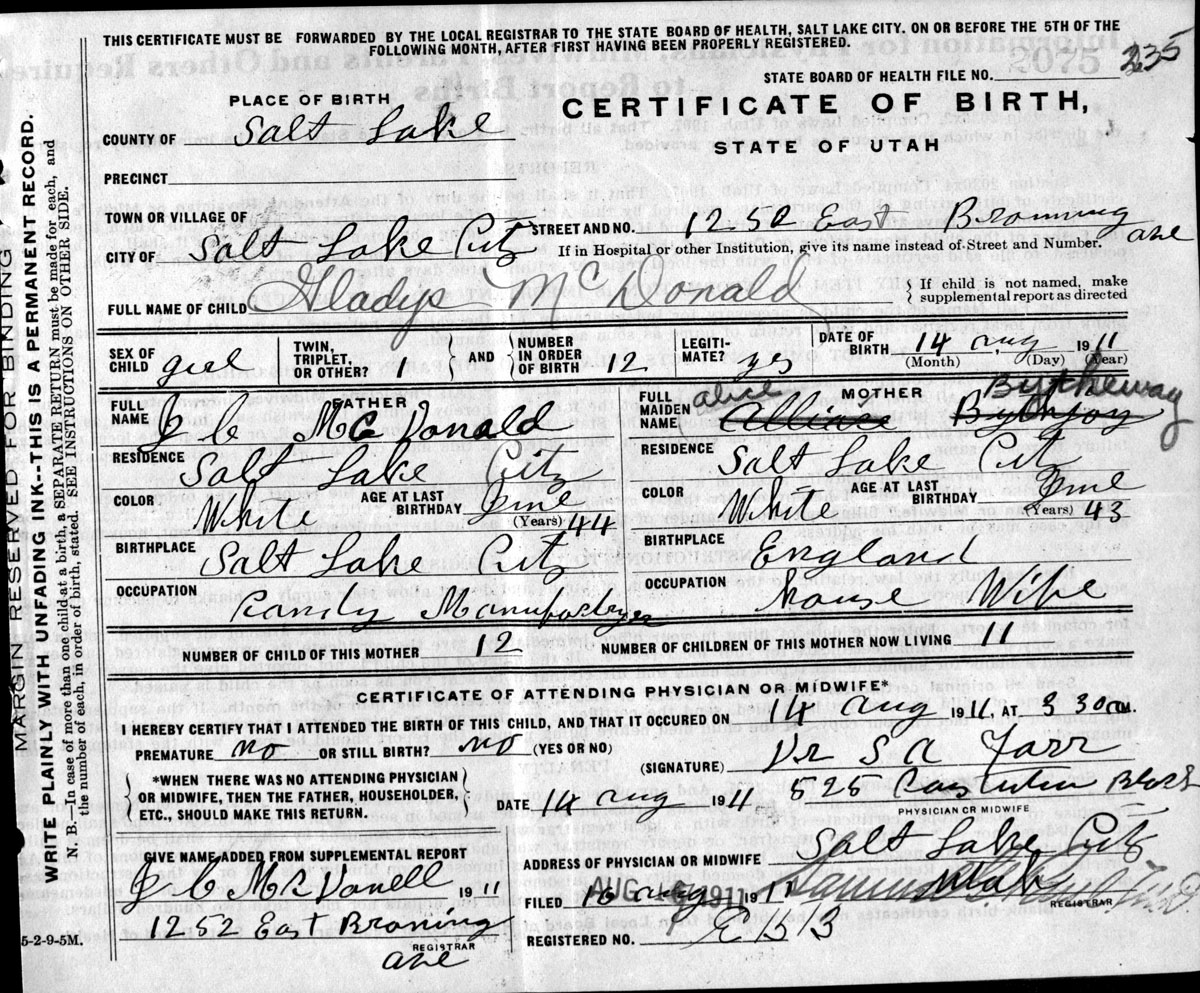 THIS CERTIFICATE MUST BE FORWARDED BY THE LOCAL REGISTRAR TO THE STATE BOARD OF HEALTH, SALT LAKE CITY. ON OR BEFORE THE 5TH OF THE
FOLLOWING MONTH, AFTER FIRST HAVING BEEN PROPERLY REGISTERED.
2075
STATE BOARD OF HEALTH FILE NO. 235
PLACE OF BIRTH
CERTIFICATE OF BIRTH,
COUNTY OF Salt Lake
STATE OF UTAH
PRECINCT
TOWN OR VILLAGE OF
STREET AND NO. 1252 East Browning ave
CITY OF Salt Lake City
If in Hospital or other Institution, give its name instead of Street and Number.
FULL NAME OF CHILD Gladys McDonald
If child is not named, make
supplemental report as directed
SEX OF CHILD girl
TWIN, TRIPLET, OR OTHER? 1
AND
NUMBER IN ORDER OF BIRTH 12
LEGITI-MATE? yes
DATE OF BIRTH 14 aug 1911
(Month) (Day) (Year)
FATHER
FULL NAME J C McDonald
RESIDENCE Salt Lake City
COLOR White
AGE AT LAST BIRTHDAY 44
(Years)
BIRTHPLACE Salt Lake City
OCCUPATION Candy
MOTHER
FULL MAIDEN NAME alice Bytheway
RESIDENCE Salt Lake City
COLOR White
AGE AT LAST BIRTHDAY 43
(Years)
BIRTHPLACE England
OCCUPATION House Wife
NUMBER OF CHILD OF THIS MOTHER 12
NUMBER OF CHILDREN OF THIS MOTHER NOW LIVING 11
CERTIFICATE OF ATTENDING PHYSICIAN OR MIDWIFE*
I HEREBY CERTIFY THAT I ATTENDED THE BIRTH OF THIS CHILD, AND THAT IT OCCURED ON 14 aug 1911, AT 3 30 a M.
PREMATURE no OR STILL BIRTH? no (YES OR NO)
(SIGNATURE) Dr S A Farr
*WHEN THERE WAS NO ATTENDING PHYSICIAN
OR MIDWIFE, THEN THE FATHER, HOUSEHOLDER,
ETC., SHOULD MAKE THIS RETURN.
DATE 14 aug 1911 525
PHYSICIAN OR MIDWIFE
GIVE NAME ADDED FROM SUPPLEMENTAL REPORT
J C 1911
1252 East Broning
REGISTRAR
ave
ADDRESS OF PHYSICIAN OR MIDWIFE Salt Lake City
Utah
FILED 16 aug 1911
AUG 1911
REGISTRAR
REGISTERED NO.
5-2-9-5M.
MARGIN RESERVED FOR BINDING
WRITE PLAINLY WITH UNFADING INK--THIS IS A PERMANENT RECORD.
N. B.--In case of more than one child at a birth, a SEPARATE RETURN must be made for each, and
the number of each, in order of birth, stated. SEE INSTRUCTIONS ON OTHER SIDE.